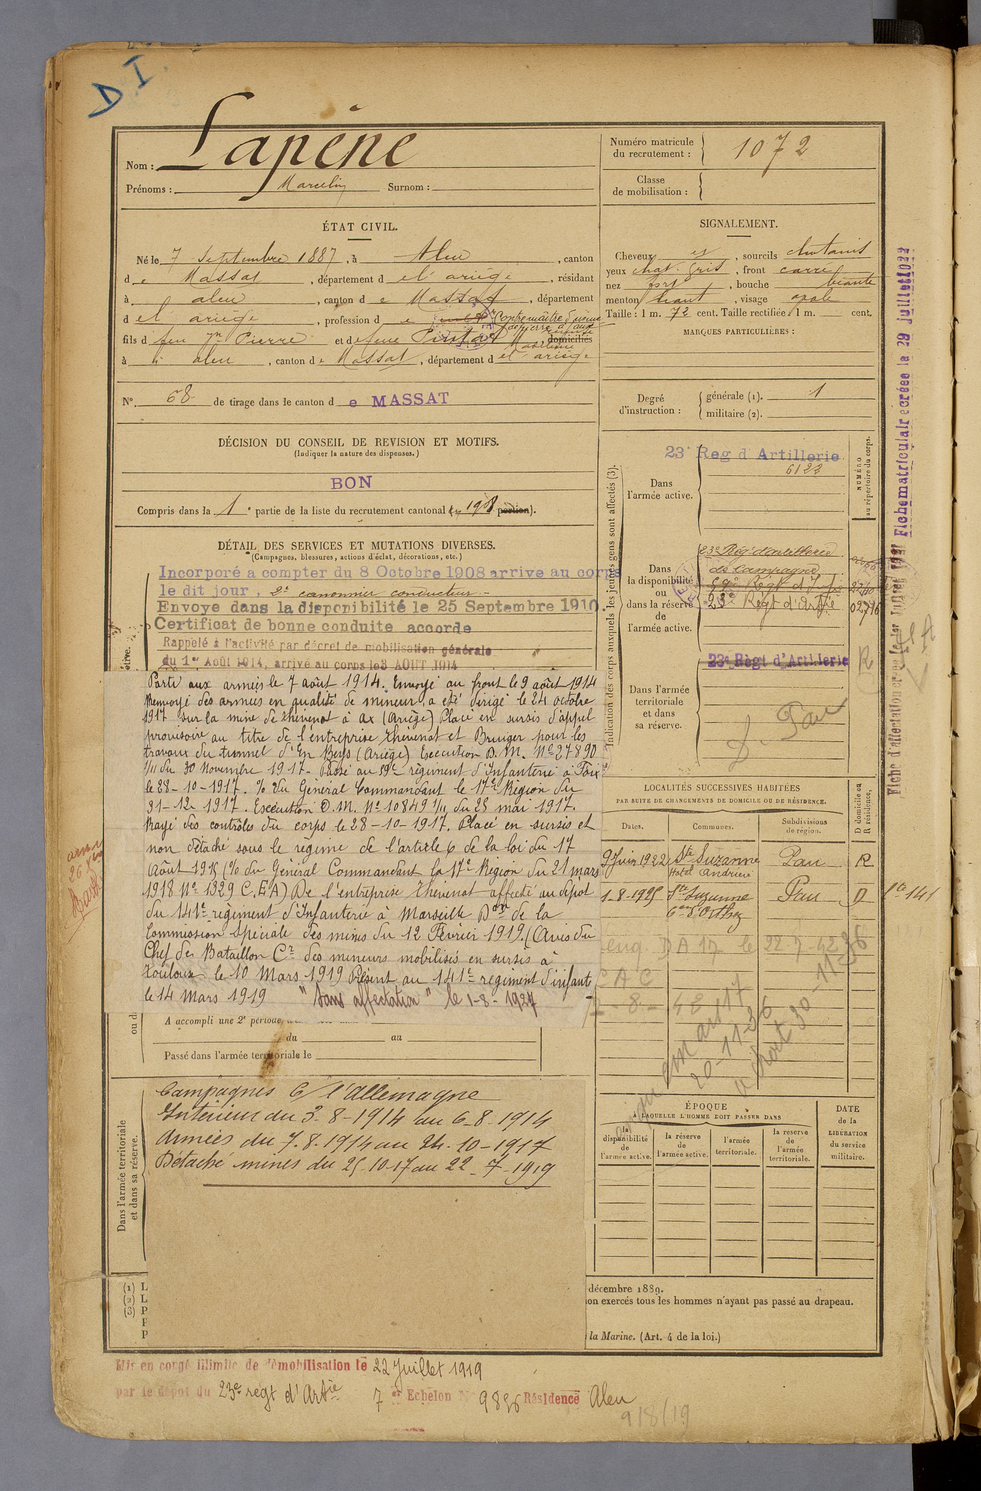 D I
Nom : Lapène
Prénoms : Marcelin Surnom :
Numéro matricule
du recrutement : 1072
Classe
de mobilisation :
ÉTAT CIVIL.
Né le 7 Septembre 1887, à Aleu, canton
de Massat, département de l'ariège, résidant
à aleu, canton de Massat, département
de l'ariège, profession de
fils de feu Pierre et de domiciliés
à aleu, canton de Massat, département de l'ariège
N°. 68 de tirage dans le canton de MASSAT
DÉCISION DU CONSEIL DE REVISION ET MOTIFS.
(Indiquer la nature des dispenses.)
BON
Compris dans la 1e partie de la liste du recrutement cantonal ( 1908 portion).
SIGNALEMENT.
Cheveux , sourcils chatains
yeux chat. gris, front carré
nez fort, bouche
menton, visage ovale
Taille : 1 m. 72 cent. Taille rectifiée : 1 m. cent.
MARQUES PARTICULIÈRES :
Degré
d'instruction :
générale (1). 1
militaire (2).
DÉTAIL DES SERVICES ET MUTATIONS DIVERSES.
(Campagnes, blessures, actions d'éclat, décorations, etc.)
Incorporé a compter du 8 Octobre 1908 arrive au corps
le dit jour, 2e canonnier conducteur -
Envoye dans la disponibilité le 25 Septembre 1910.
Certificat de bonne conduite accorde
Rappelé à l'activité par décret de mobilisation générale
du 1er Août 1914, arrivé au corps le 3 AOUT 1914
Parti aux armées le 7 août 1914. Envoyé au front le 9 août 1914
Renvoyé des armées en qualité de mineur, a été dirigé le 24 octobre
1917 sur la mine de thévenot à ax (Ariège) Placé en sursis d'appel
provisoire au titre de l'entreprise Thévenot et Bruiger pour les
travaux du tunnel d'En Beys (Ariège) Exécution D.M. N° 27890
1/11 du 30 Novembre 1917. Passé au 59e régiment d'Infanterie à Foix
le 28-10-1917. % du Général Commandant le 17e Région du
31-12-1917. Exécution D.M. N° 10849 1/11 du 28 mai 1917.
Rayé des contrôles du corps le 28-10-1917. Placé en sursis et
non détaché sous le régime de l'article 6 de la loi du 17
Août 1915 (% du Général Commandant la 17e Région du 21 mars
1918 N° 1329 C.E.A) De l'entreprise Thévenot affecté au dépôt
du 141e régiment d'Infanterie à Marseille Don de la
Commission Spéciale des mines du 12 Février 1919. (Avis du
Chef de Bataillon Ct des mineurs mobilisés en sursis à
Toulouse le 10 Mars 1919 Présent au 141e régiment d'infant
le 14 Mars 1919 "Sans affectation" le 1-8-1927
A accompli une 2e période,
du au
Passé dans l'armée territoriale le
Campagnes C/ l'allemagne
Intérieur du 3-8-1914 au 6-8-1914
Armées du 7.8.1914 au 24-10-1917
Détaché mines du 25.10-17 au 22-7-1919
Dans l'armée territoriale
et dans sa réserve.
Indication des corps auxquels les jeunes gens sont affectés (3).
Dans
l'armée active.
23e Reg d Artillerie
6122
NUMÉRO
au répertoire du corps.
Dans
la disponibilité
ou
dans la réserve
de
l'armée active.
23e Rég. d'artillerie
de Campagne
59e Régt d'Inf
23e Régt d'Artie
Dans l'armée
territoriale
et dans
sa réserve.
23e Régt d'Artillerie R
D. Pau
LOCALITÉS SUCCESSIVES HABITÉES
PAR SUITE DE CHANGEMENTS DE DOMICILE OU DE RÉSIDENCE.
Dates. Communes. Subdivisions
de région. D domicile ou
R résidence.
9 Juin 1922 Ste Suzanne
Hotel Andrieu Pau R
1-8-1925 Ste Suzanne
Con d'Orthez Pau D
enq. DA 17 le 22-7-42
C A C
2-8-48
ÉPOQUE
À LAQUELLE L'HOMME DOIT PASSER DANS
la
disponibilité
de
l'armée active.
la réserve
de
l'armée active.
l'armée
territoriale.
la reserve
de
l'armée
territoriale.
DATE
de la
LIBÉRATION
du service
militaire.
décembre 1889.
on exercés tous les hommes n'ayant pas passé au drapeau.
la Marine. (Art. 4 de la loi.)
(1) L
(2) L
(3) P
P
P
Mis en congé illimité de démobilisation le 22 Juillet 1919
par le dépôt du 23e regt d'Artie 7 er Echelon N° 9836 Résidence Aleu
9/8/19